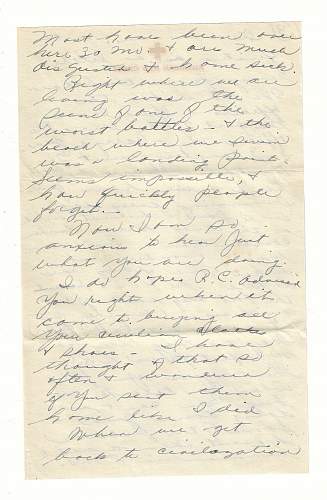 Most have been over
here 30 mo. & are much
disgusted & home sick.
Right where we are
living was the
scene of one of the
worst battles - & the
beach where we swim
was a landing point.
Seems impossible, &
how quickly people
forget.
Now I am so
anxious to hear just
what you are doing.
I do hope R.C. advised
you right when it
came to buying all
your civilian clothes
& shoes - I have
thought of that so
often & wondered
if you sent them
home like I did
When we get
back to civilization